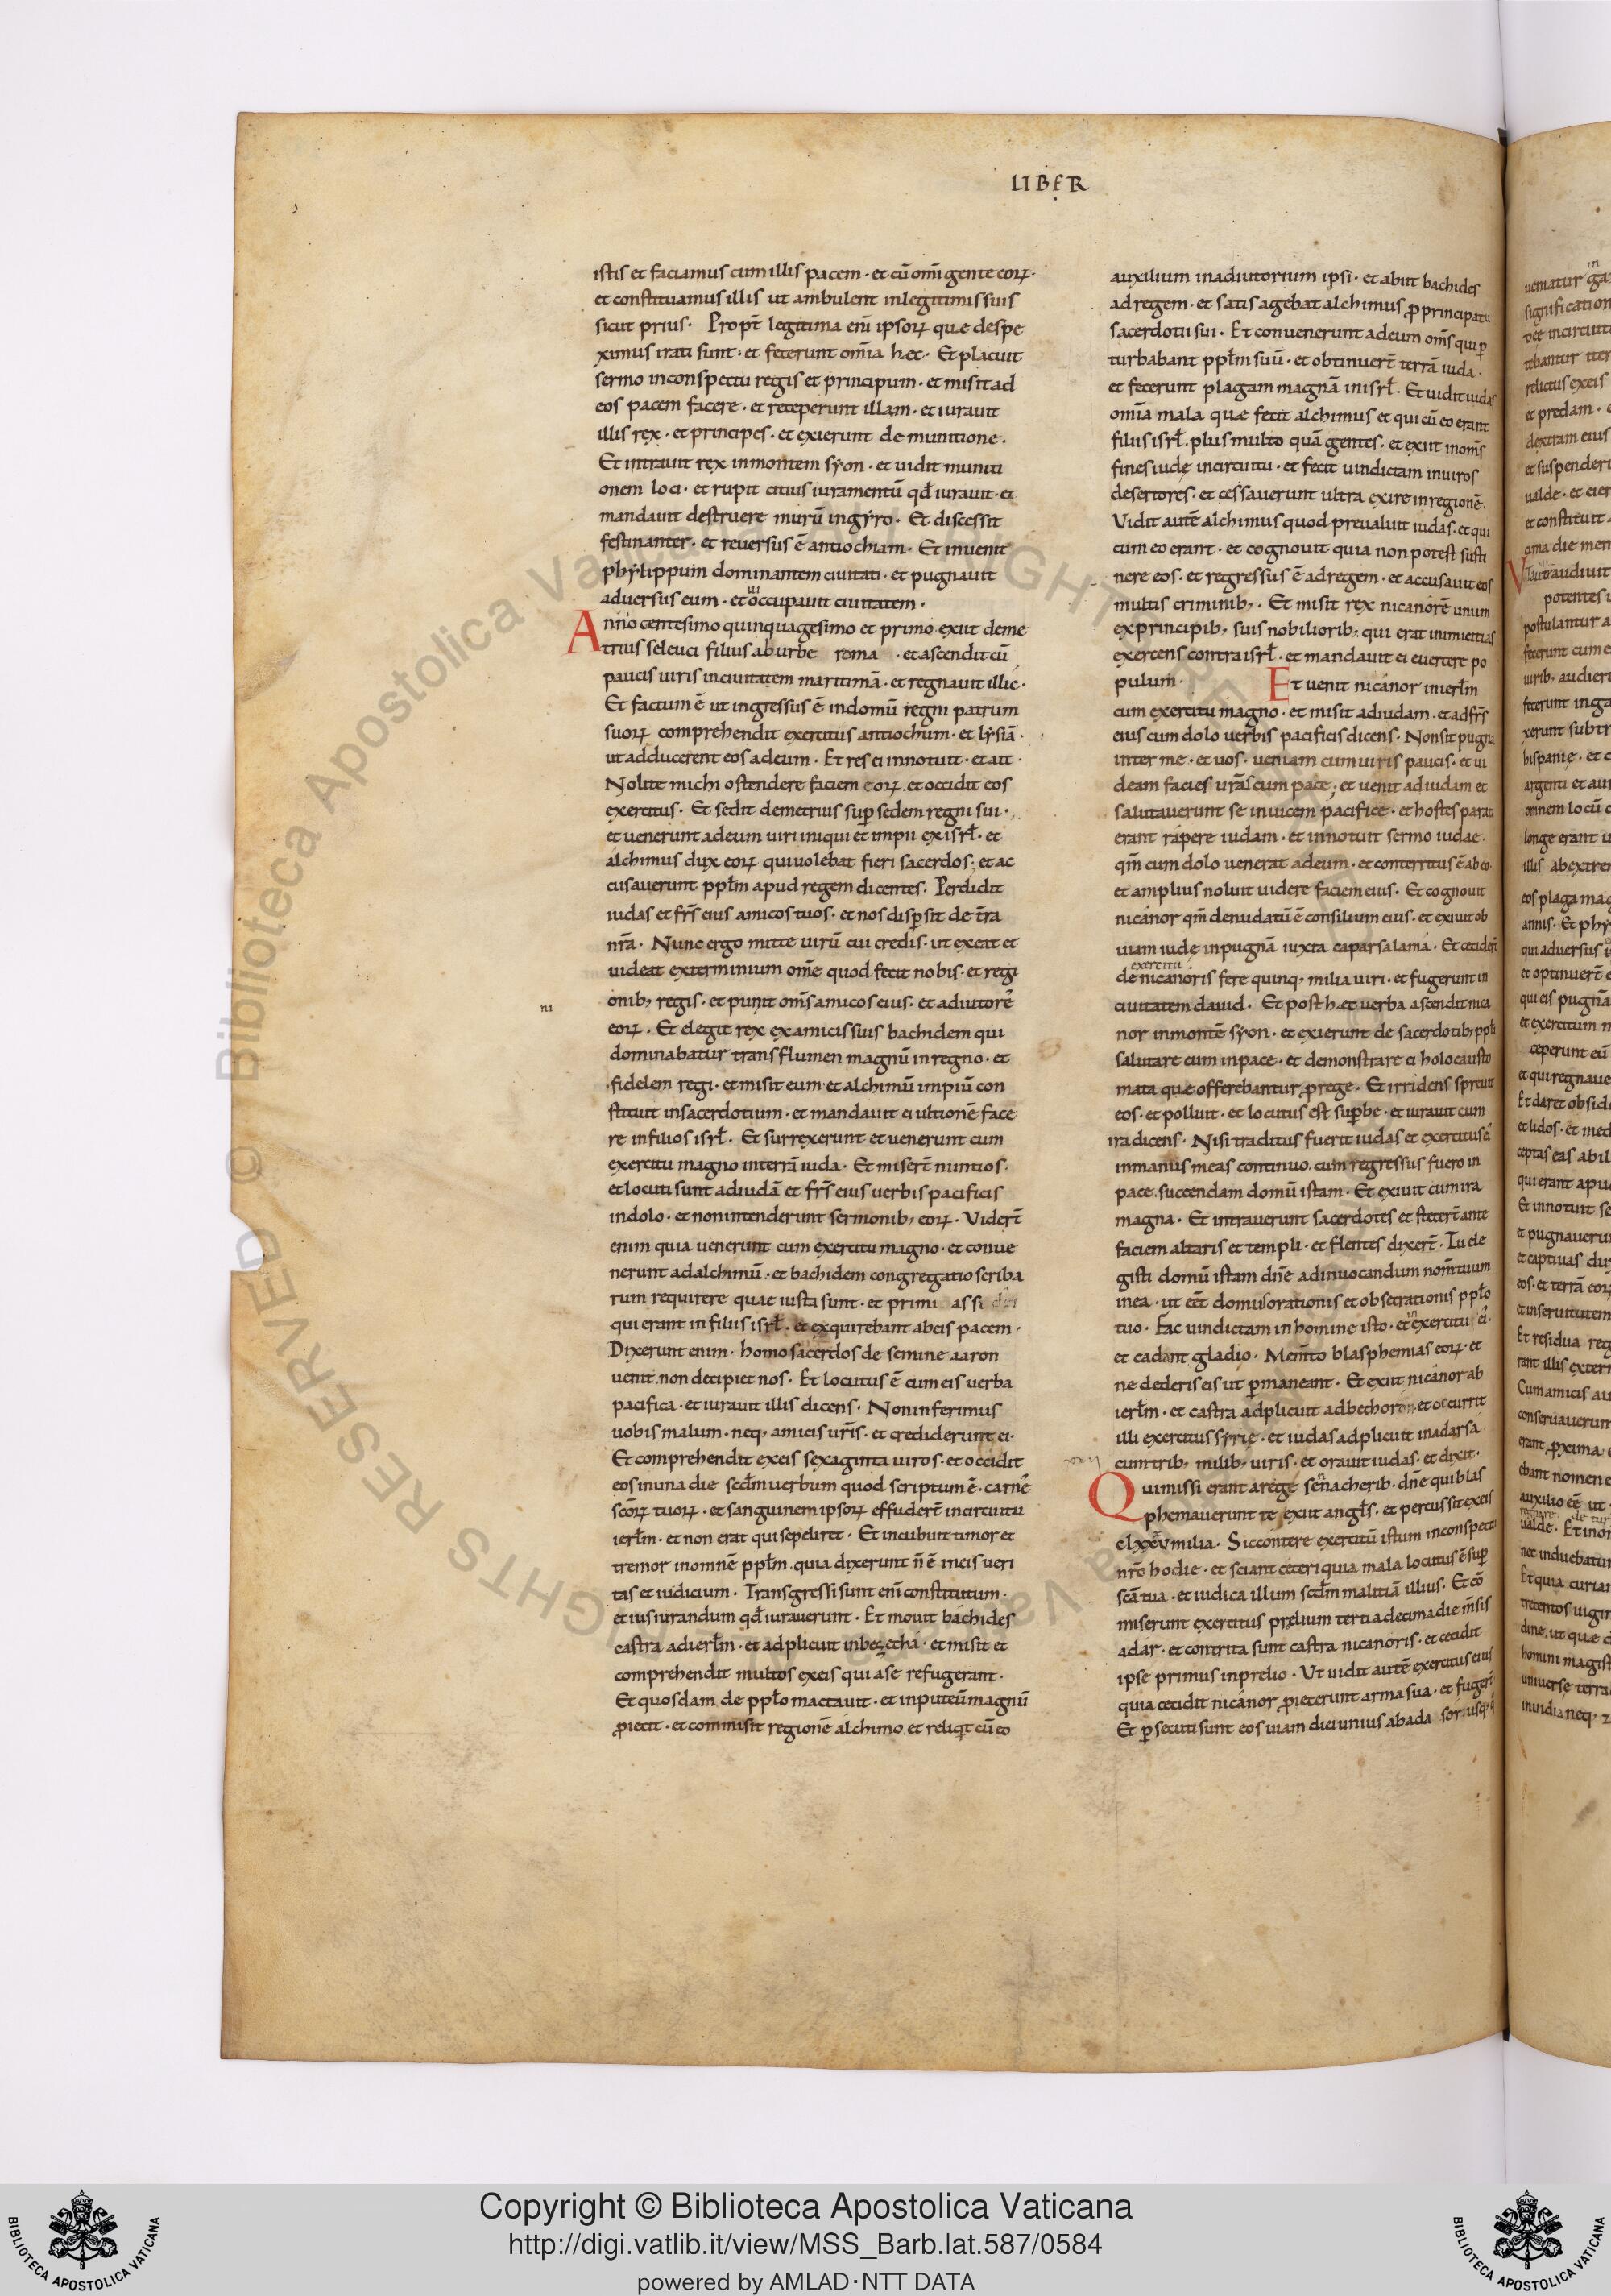 LIBER
istis et faciamus cum illis pacem · et cū om̄i gente eoꝝ ·
et constituamus illis ut ambulent inlegitimis suis
sicut prius · Propt̄ legitima eni̅ ipsoꝝ que despe
ximus irati sunt · et fecerunt om̄ia hęc · Et placuit
sermo inconspectu regis et principum · et misit ad
eos pacem facere · et receperunt illam · et iurauit
illis rex · et principes · et exierunt de munitione ·
Et intrauit rex inmontem syon · et uidit muniti
onem loci · et rupit citius iuramentū qđ iurauit · et
mandauit destruere murū ingyro · Et discessit
festinanter · et reuersus ē antiochiam · Et inuenit
phylippum dominantem ciuitati · et pugnauit
aduersus eum · et occupauit ciuitatem ·
Anno centesimo quinquagesimo et primo exiit deme
trius seleuci filius ab urbe roma · et ascendit cū
paucis uiris inciuitatem maritimā · et regnauit illic ·
Et factum ē ut ingressus ē indomū regni patrum
suoꝝ comprehendit exercitus antiochum · et lysiā ·
ut adducerent eos adeum · Et res ei innotuit · et ait ·
Nolite michi ostendere faciem eoꝝ · et occidit eos
exercitus · Et sedit demetrius suꝑ sedem regni sui ·
et uenerunt adeum uiri iniqui et impii ex isrł · et
alchimus dux eoꝝ qui uolebat fieri sacerdos · et ac
cusauerunt ppłm apud regem dicentes · Perdidit
iudas et frs̄ eius amicos tuos · et nos disꝑsit de tr̄a
nr̄a · Nunc ergo mitte uirū cui credis · ut exeat et
uideat exterminium om̄e quod fecit nobis · et regi
ni
onib; regis · et puniit om̄s amicos eius · et adiutore᷒
eoꝝ · Et elegit rex examicis suis bachidem qui
dominabatur trans flumen magnū inregno · et
fidelem regi · et misit eum · et alchimū impiū con
stituit insacerdotium · et mandauit ei ultionē face
re infilios isrł · Et surrexerunt et uenerunt cum
exercitu magno interrā iuda · Et miserт̄ nuntios ·
et locuti sunt adiudā et frs̄ eius uerbis pacificis
indolo · et non intenderunt sermonib; eoꝝ · Uiderт̄
enim quia uenerunt cum exercitu magno · et conue
nerunt adalchimū · et bachidem congregatio scriba
rum requirere quae iusta sunt · et primi assi dei
qui erant in filiis isrł · et exquirebant abeis pacem ·
Dixerunt enim · homo sacerdos de semine aaron
uenit · non decipiet nos · Et locutus ē cum eis uerba
pacifica · et iurauit illis dicens · Non inferimus
uobis malum · neq; amicis uris̄ · et crediderunt ei ·
Et comprehendit exeis sexaginta uiros · et occidit
eos inuna die scd̄m uerbum quod scriptum ē · carne᷒
scōꝝ tuoꝝ · et sanguinem ipsoꝝ effuderт̄ incircuitu
ierłm · et non erat qui sepeliret · Et incubuit timor et
tremor inomnē ppłm · quia dixerunt n̄ ē ineis ueri
tas et iudicium · Transgressi sunt eni̅ constitutum ·
et iusiurandum qđ iurauerunt · Et mouit bachides
castra adierłm · et adplicuit inbezecha · et misit et
comprehendit multos exeis qui ase refugerant ·
Et quosdam de ppło mactauit · et inputeū magnū
ꝓiecit · et commisit regionē alchimo · et reliqт̄ cū eo
auxilium inadiutorium ipsi · et abiit bachides
adregem · et satis agebat alchimus ꝓ principatu
sacerdotii sui · Et conuenerunt adeum om̄s qui ꝑ
turbabant ppłm suū · et obtinuerт̄ terrā iuda ·
et fecerunt plagam magnā inisrł · Et uidit iudas
om̄ia mala quę fecit alchimus et qui cū eo erant
filiis isrł · plus multo quā gentes · et exiit inom̄s
fines iudę incircuitu · et fecit uindictam inuiros
desertores · et cessauerunt ultra exire inregionē ·
Vidit autē alchimus quod preualuit iudas · et qui
cum eo erant · et cognouit quia non potest susti
nere eos · et regressus ē adregem · et accusauit eos
multis criminib; · Et misit rex nicanorē unum
exprincipib; suis nobiliorib; qui erat inimicitias
exercens contra isrł · et mandauit ei euertere po
pulum · Et uenit nicanor inierłm
cum exercitu magno · et misit adiudam · et adfrs̄
eius cum dolo uerbis pacificis dicens · Non sit pugna
inter me · et uos · ueniam cum uiris paucis · et ui
deam facies uras̄ cum pace · et uenit adiudam et
salutauerunt se inuicem pacifice · et hostes parati
erant rapere iudam · et innotuit sermo iudae ·
qm̄ cum dolo uenerat adeum · et conterritus ē ab eo ·
et amplius noluit uidere faciem eius · Et cognouit
nicanor qm̄ denudatū ē consilium eius · et exiuit ob
uiam iude inpugnā iuxta caparsalama · Et ceciderт̄
exercitu
de nicanoris fere quinq; milia uiri · et fugerunt in
ciuitatem dauid · Et post hęc uerba ascendit nica
nor inmontē syon · et exierunt de sacerdotib; ppłi
salutare eum inpace · et demonstrare ei holocausto
mata quę offerebantur ꝓ rege · Et irridens spreuit
eos · et polluit · et locutus est suꝑbe · et iurauit cum
ira dicens · Nisi traditus fuerit iudas et exercitus ei᷒
inmanus meas continuo · cum regressus fuero in
pace · succendam domū istam · Et exiuit cum ira
magna · Et intrauerunt sacerdotes et steterт̄ ante
faciem altaris et templi · et flentes dixerт̄ · Tu ele
gisti domū istam dn̄e adinuocandum nom̄ tuum
inea · ut eēt domus orationis et obsecrationis ppło
tuo · Fac uindictam in homine isto · et in exercitu ei᷒ ·
et cadant gladio · Mem̄to blasphemias eoꝝ · et
ne dederis eis ut ꝑmaneant · Et exiit nicanor ab
ierłm · et castra adplicuit adbethoron · et occurrit
illi exercitus syrię · et iudas adplicuit inadarsa
cum trib; milib; uiris · et orauit iudas · et dixit ·
Qui missi erant arege sennacherib · dn̄e qui blas
phemauerunt te exiit angłs · et percussit exeis
clxxxv milia · Sic contere exercitū istum inconspectu
nr̄o hodie · et sciant ceteri quia mala locutus ē suꝑ
scā tua · et iudica illum scd̄m malitiā illius · Et cō
miserunt exercitus prelium tertiadecima die m̄sis
adar · et contrita sunt castra nicanoris · et cecidit
ipse primus inprelio · Ut uidit autē exercitus eius
quia cecidit nicanor ꝓiecerunt arma sua · et fugerт̄
Et ꝑsecuti sunt eos uiam diei unius abada
Copyright © Biblioteca Apostolica Vaticana
http://digi.vatlib.it/view/MSS_Barb.lat.587/0584
powered by AMLAD·NTT DATA
BIBLIOTECA APOSTOLICA VATICANA
BIBLIOTECA APOSTOLICA VATICANA